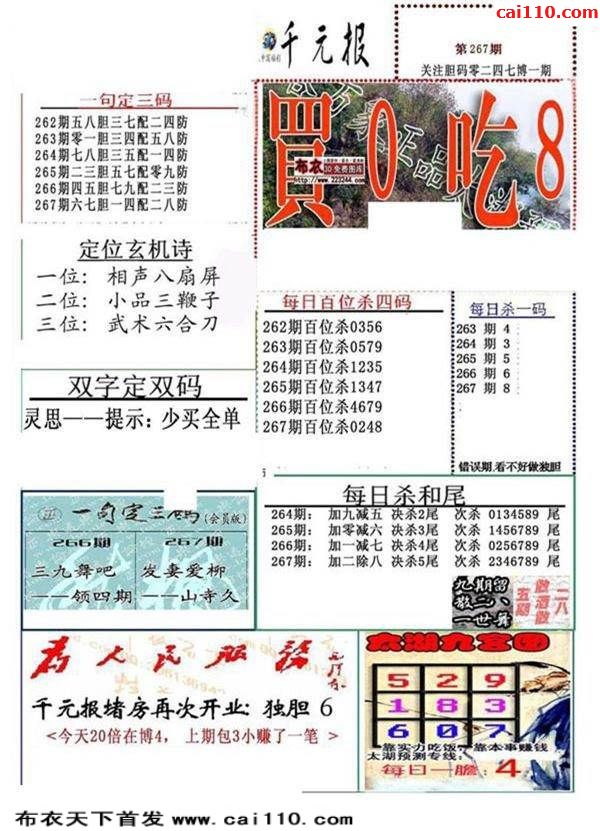 cai110.com
千元报
第267期
关注胆码零二四七博一期
一句定三码
262期五八胆三七配二四防
263期零一胆三四配五八防
264期七八胆三五配一四防
265期二三胆五七配零九防
266期四五胆七九配二三防
267期六七胆一四配二八防
買0吃8
布衣
3D免费图库
http://www.223244.com
定位玄机诗
一位: 相声八扇屏
二位: 小品三鞭子
三位: 武术六合刀
每日百位杀四码
262期百位杀0356
263期百位杀0579
264期百位杀1235
265期百位杀1347
266期百位杀4679
267期百位杀0248
每日杀一码
263 期 4
264 期 3
265 期 5
266 期 6
267 期 8
错误期,看不好做独胆
双字定双码
灵思——提示: 少买全单
一句定三码(会员版)
266期 267期
三九舞吧 发妻爱柳
——领四期 ——山寺久
每日杀和尾
264期: 加九减五 决杀2尾 次杀 0134589 尾
265期: 加零减六 决杀3尾 次杀 1456789 尾
266期: 加一减七 决杀4尾 次杀 0256789 尾
267期: 加二除八 决杀5尾 次杀 2346789 尾
为人民服务
千元报堵房再次开业: 独胆 6
<今天20倍在博4, 上期包3小赚了一笔 >
太湖九宫图
5 2 9
1 8 3
6 0 7
靠实力吃饭,靠本事赚钱
太湖预测专线:
每日一胆: 4
布衣天下首发 www.cai110.com